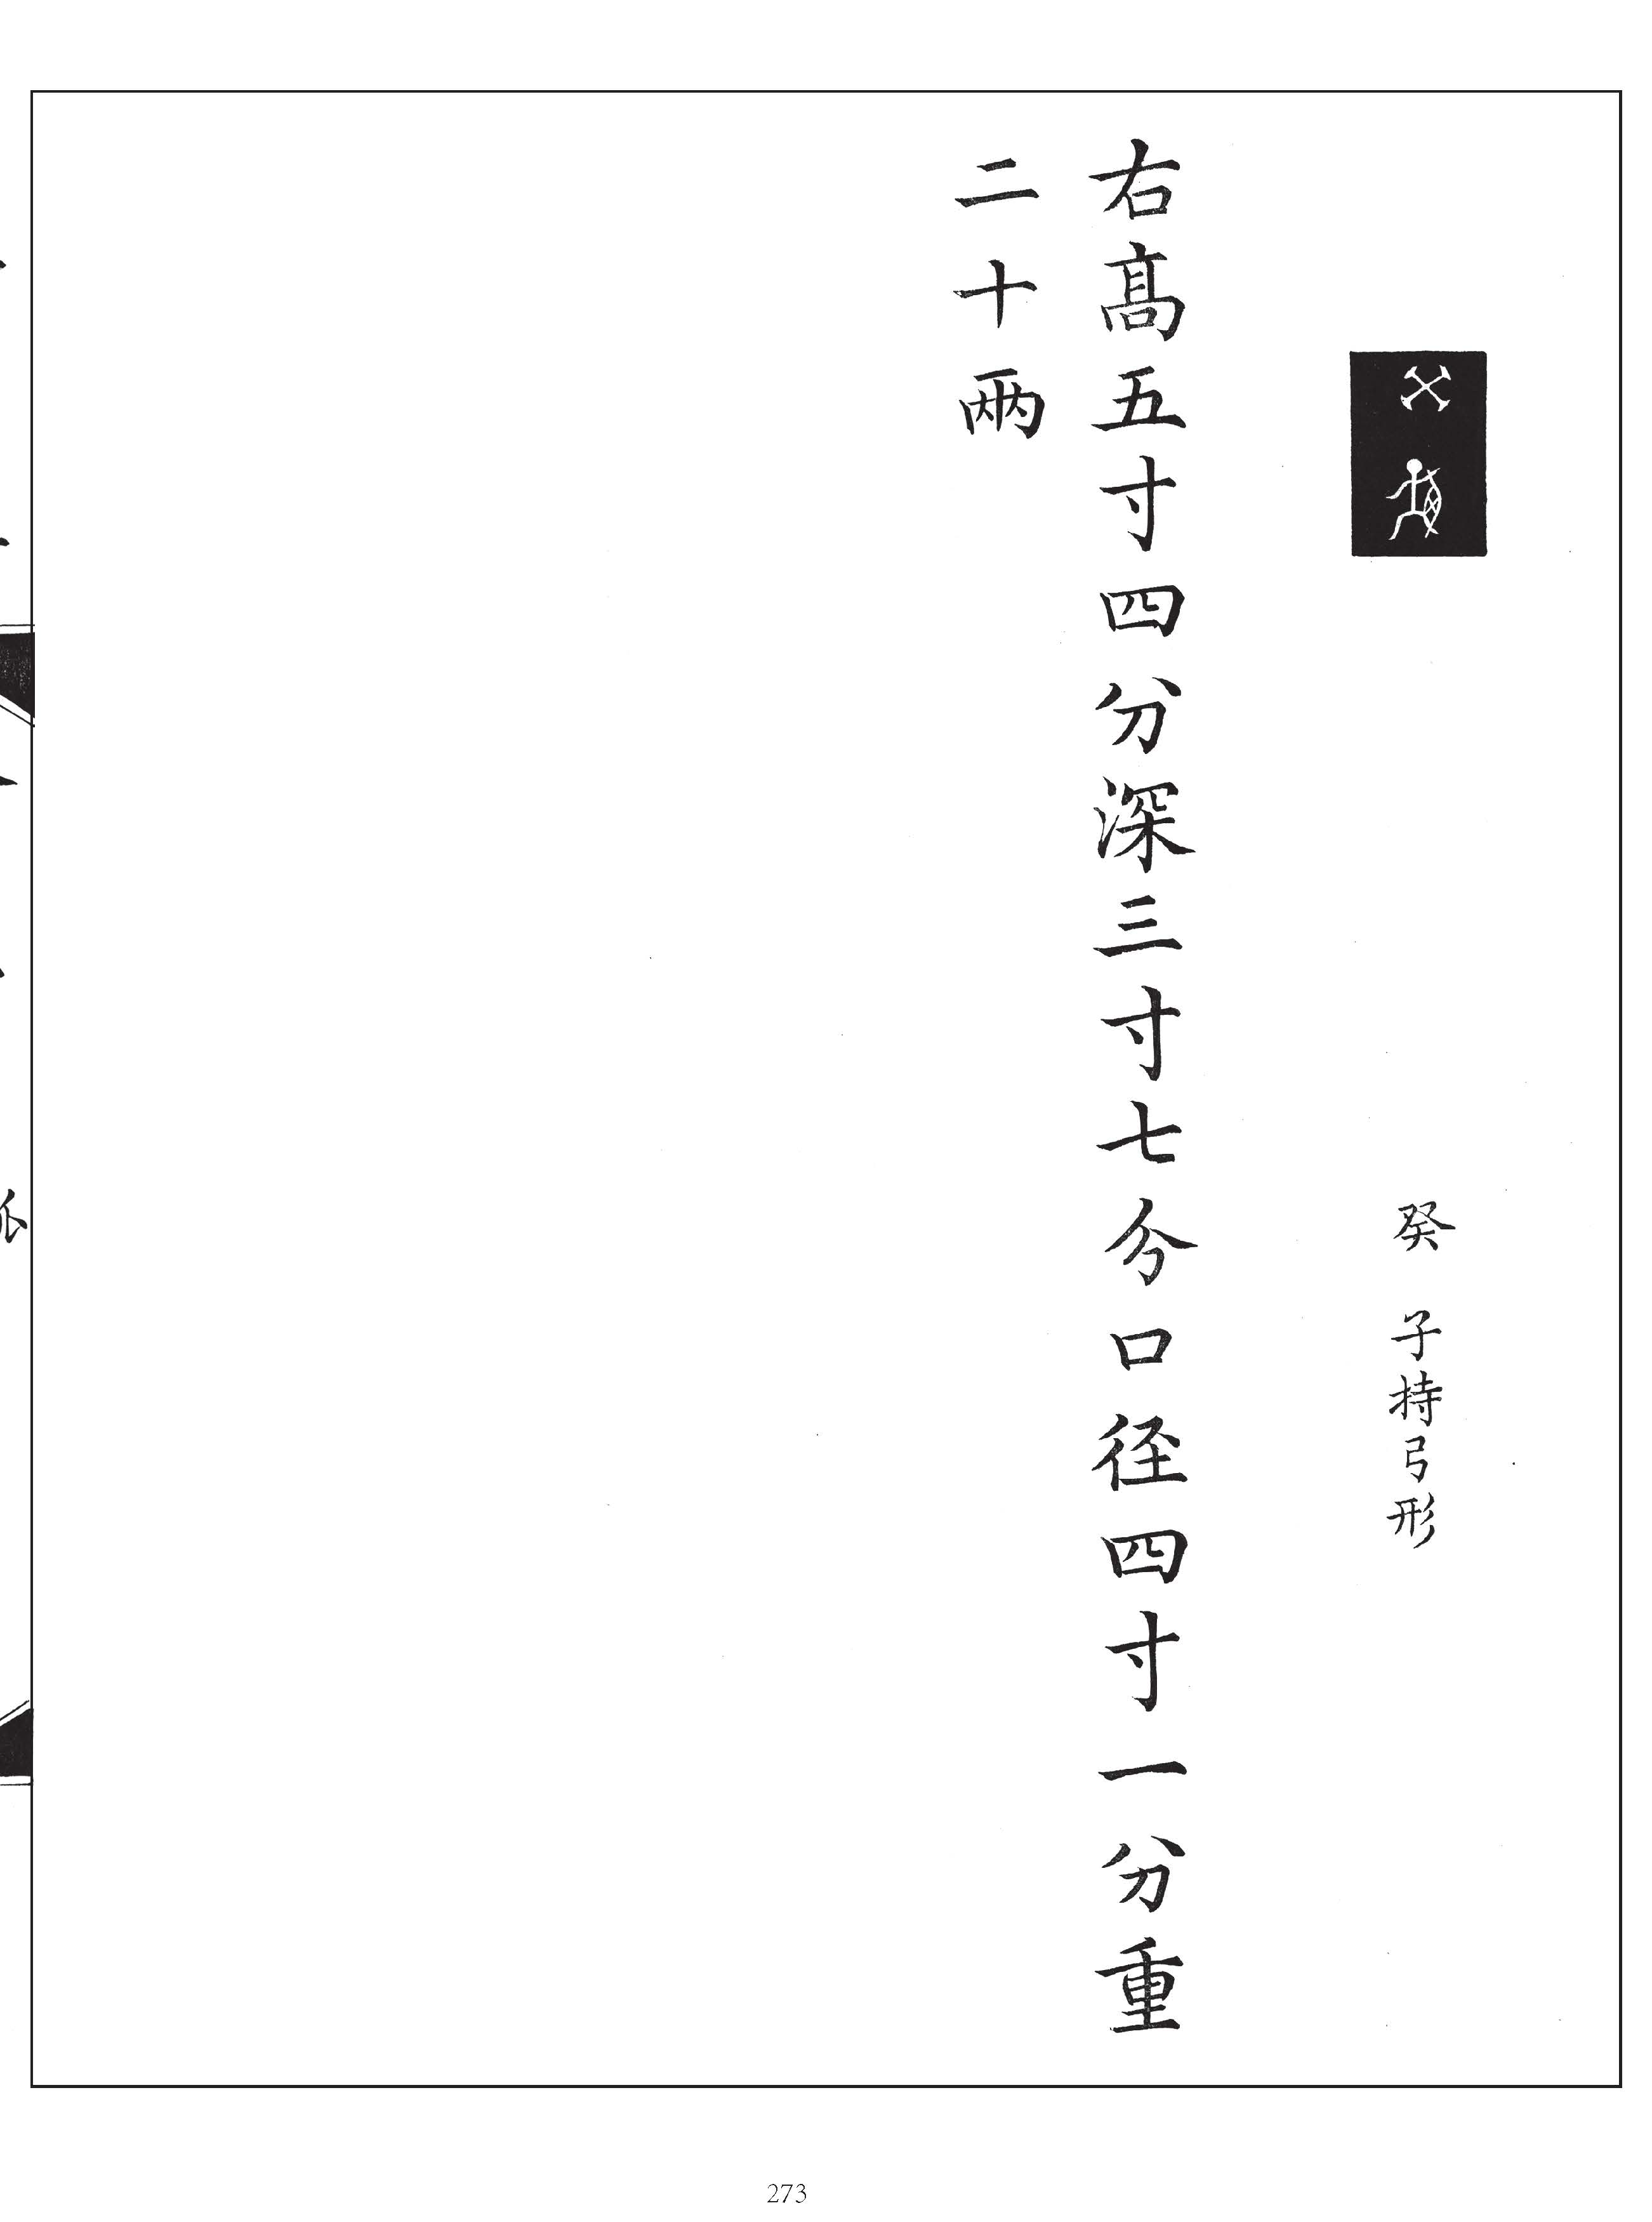 癸　子持弓形
右高五寸四分深三寸七分口径四寸一分重
二十兩
273